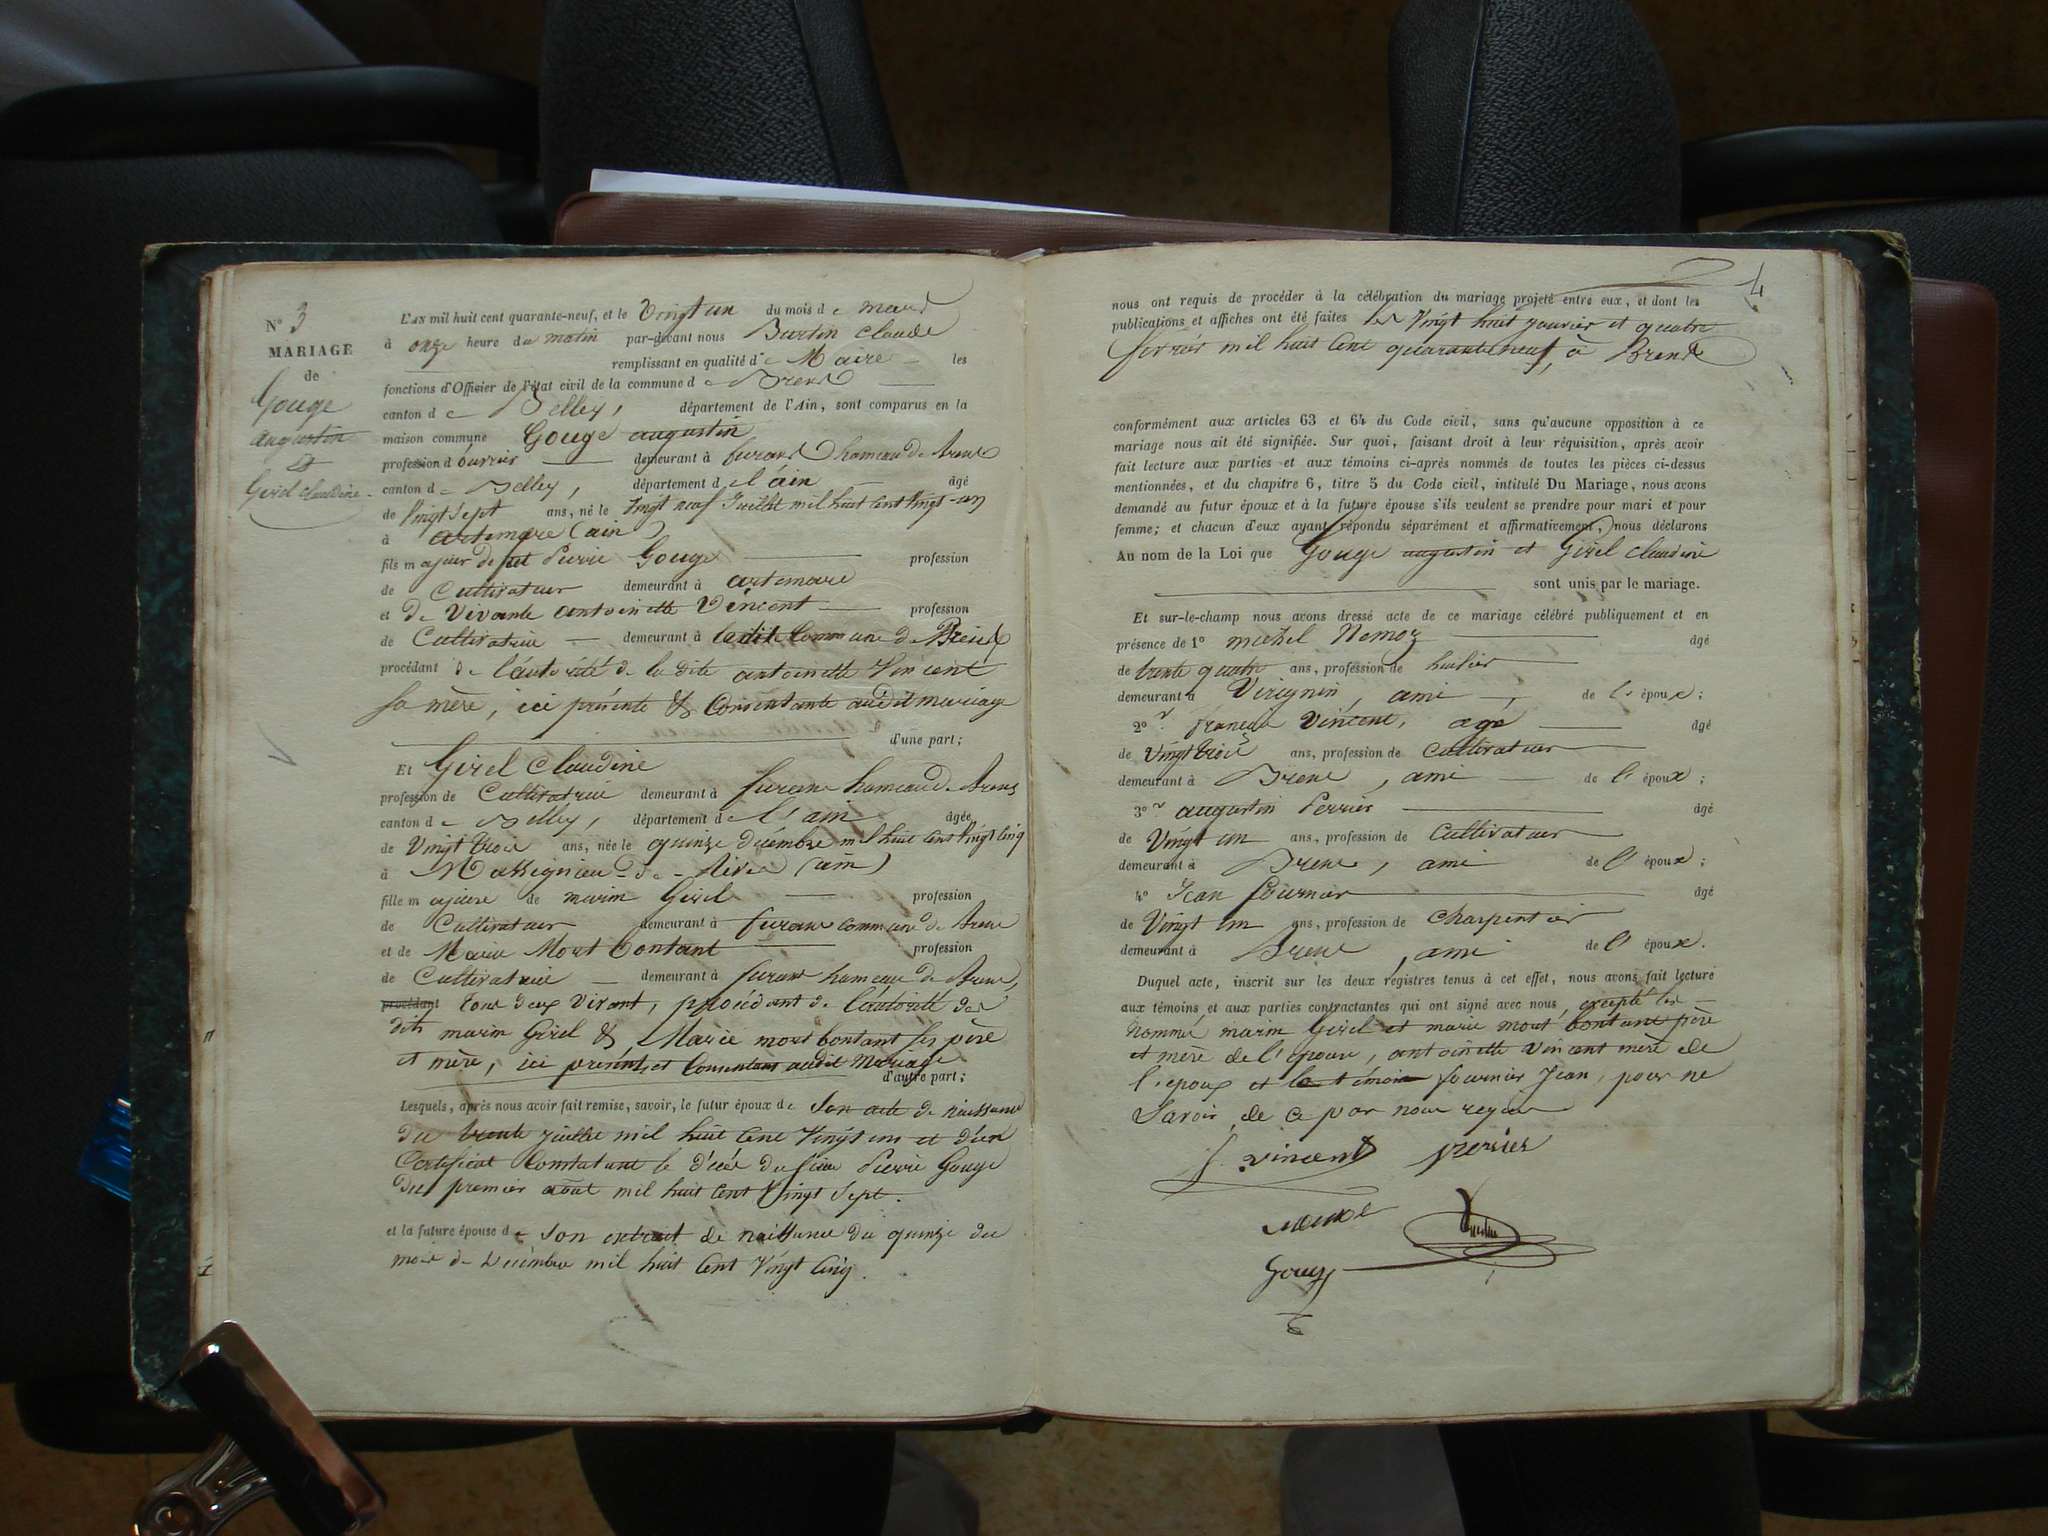 N° 3
MARIAGE
de
Gouge
augustin
et
Girel claudine
L'AN mil huit cent quarante-neuf, et le Vingt un du mois de mars
à onze heure du matin par-devant nous Burtin Claude
remplissant en qualité de Maire les
fonctions d'Officier de l'état civil de la commune de Brens
canton de Belley, département de l'Ain, sont comparus en la
maison commune Gouge augustin
profession d'ouvrier demeurant à furans hameau de Brens
canton de Belley, département de l'ain âgé
de Vingt Sept ans, né le Vingt neuf Juillet mil huit cent Vingt-un
à artemare (ain)
fils majeur de feu Pierre Gouge profession
de Cultivateur demeurant à artemare
et de Vivante antoinette Vincent profession
de Cultivatrice demeurant à ladite Commune de Brens
procédant de l'autorité de la dite antoinette Vincent
sa mère, ici présente & Consentante audit mariage
d'une part;
Et Girel Claudine
profession de Cultivatrice demeurant à furans hameau de Brens
canton de Belley, département de l'ain âgée
de Vingt trois ans, née le quinze décembre mil huit cent Vingt cinq
à Massignieu-de-Rive (ain)
fille majeure de marin Girel profession
de Cultivateur demeurant à furans commune de Brens
et de Marie Mort Contant profession
de Cultivatrice demeurant à furans hameau de Brens,
procédant tous deux Vivant, procédant de l'autorité des
dits marin Girel & Marie mort contant ses père
et mère, ici présents et Consentans audit Mariage
d'autre part;
Lesquels, après nous avoir fait remise, savoir, le futur époux de Son acte de naissance
du trente juillet mil huit cent Vingt un et d'un
Certificat Constatant le décès du sieur Pierre Gouge
du premier août mil huit cent Vingt Sept.
et la future épouse de Son extrait de naissance du quinze du
mois de Décembre mil huit cent Vingt Cinq.
4
nous ont requis de procéder à la célébration du mariage projeté entre eux, et dont les
publications et affiches ont été faites les Vingt huit janvier et quatre
février mil huit cent quarante neuf, à Brens
conformément aux articles 63 et 64 du Code civil, sans qu'aucune opposition à ce
mariage nous ait été signifiée. Sur quoi, faisant droit à leur réquisition, après avoir
fait lecture aux parties et aux témoins ci-après nommés de toutes les pièces ci-dessus
mentionnées, et du chapitre 6, titre 5 du Code civil, intitulé Du Mariage, nous avons
demandé au futur époux et à la future épouse s'ils veulent se prendre pour mari et pour
femme; et chacun d'eux ayant répondu séparément et affirmativement, nous déclarons
Au nom de la Loi que Gouge augustin et Girel claudine
sont unis par le mariage.
Et sur-le-champ nous avons dressé acte de ce mariage célébré publiquement et en
présence de 1° michel Nemoz âgé
de trente quatre ans, profession de huissier
demeurant à Virignin, ami de l'époux;
2° françois Vincent, agé âgé
de Vingt trois ans, profession de Cultivateur
demeurant à Brens, ami de l'époux;
3° augustin Perrier âgé
de Vingt un ans, profession de Cultivateur
demeurant à Brens, ami de l'époux;
4° Jean fournier âgé
de Vingt un ans, profession de Charpentier
demeurant à Brens, ami de l'époux.
Duquel acte, inscrit sur les deux registres tenus à cet effet, nous avons fait lecture
aux témoins et aux parties contractantes qui ont signé avec nous, excepté les
nommé marin Girel et marie mort contant père
et mère de l'épouse, antoinette Vincent mère de
l'époux et le témoin fournier Jean, pour ne
Savoir, de ce par nous requis
f. Vincent perrier
Gouge